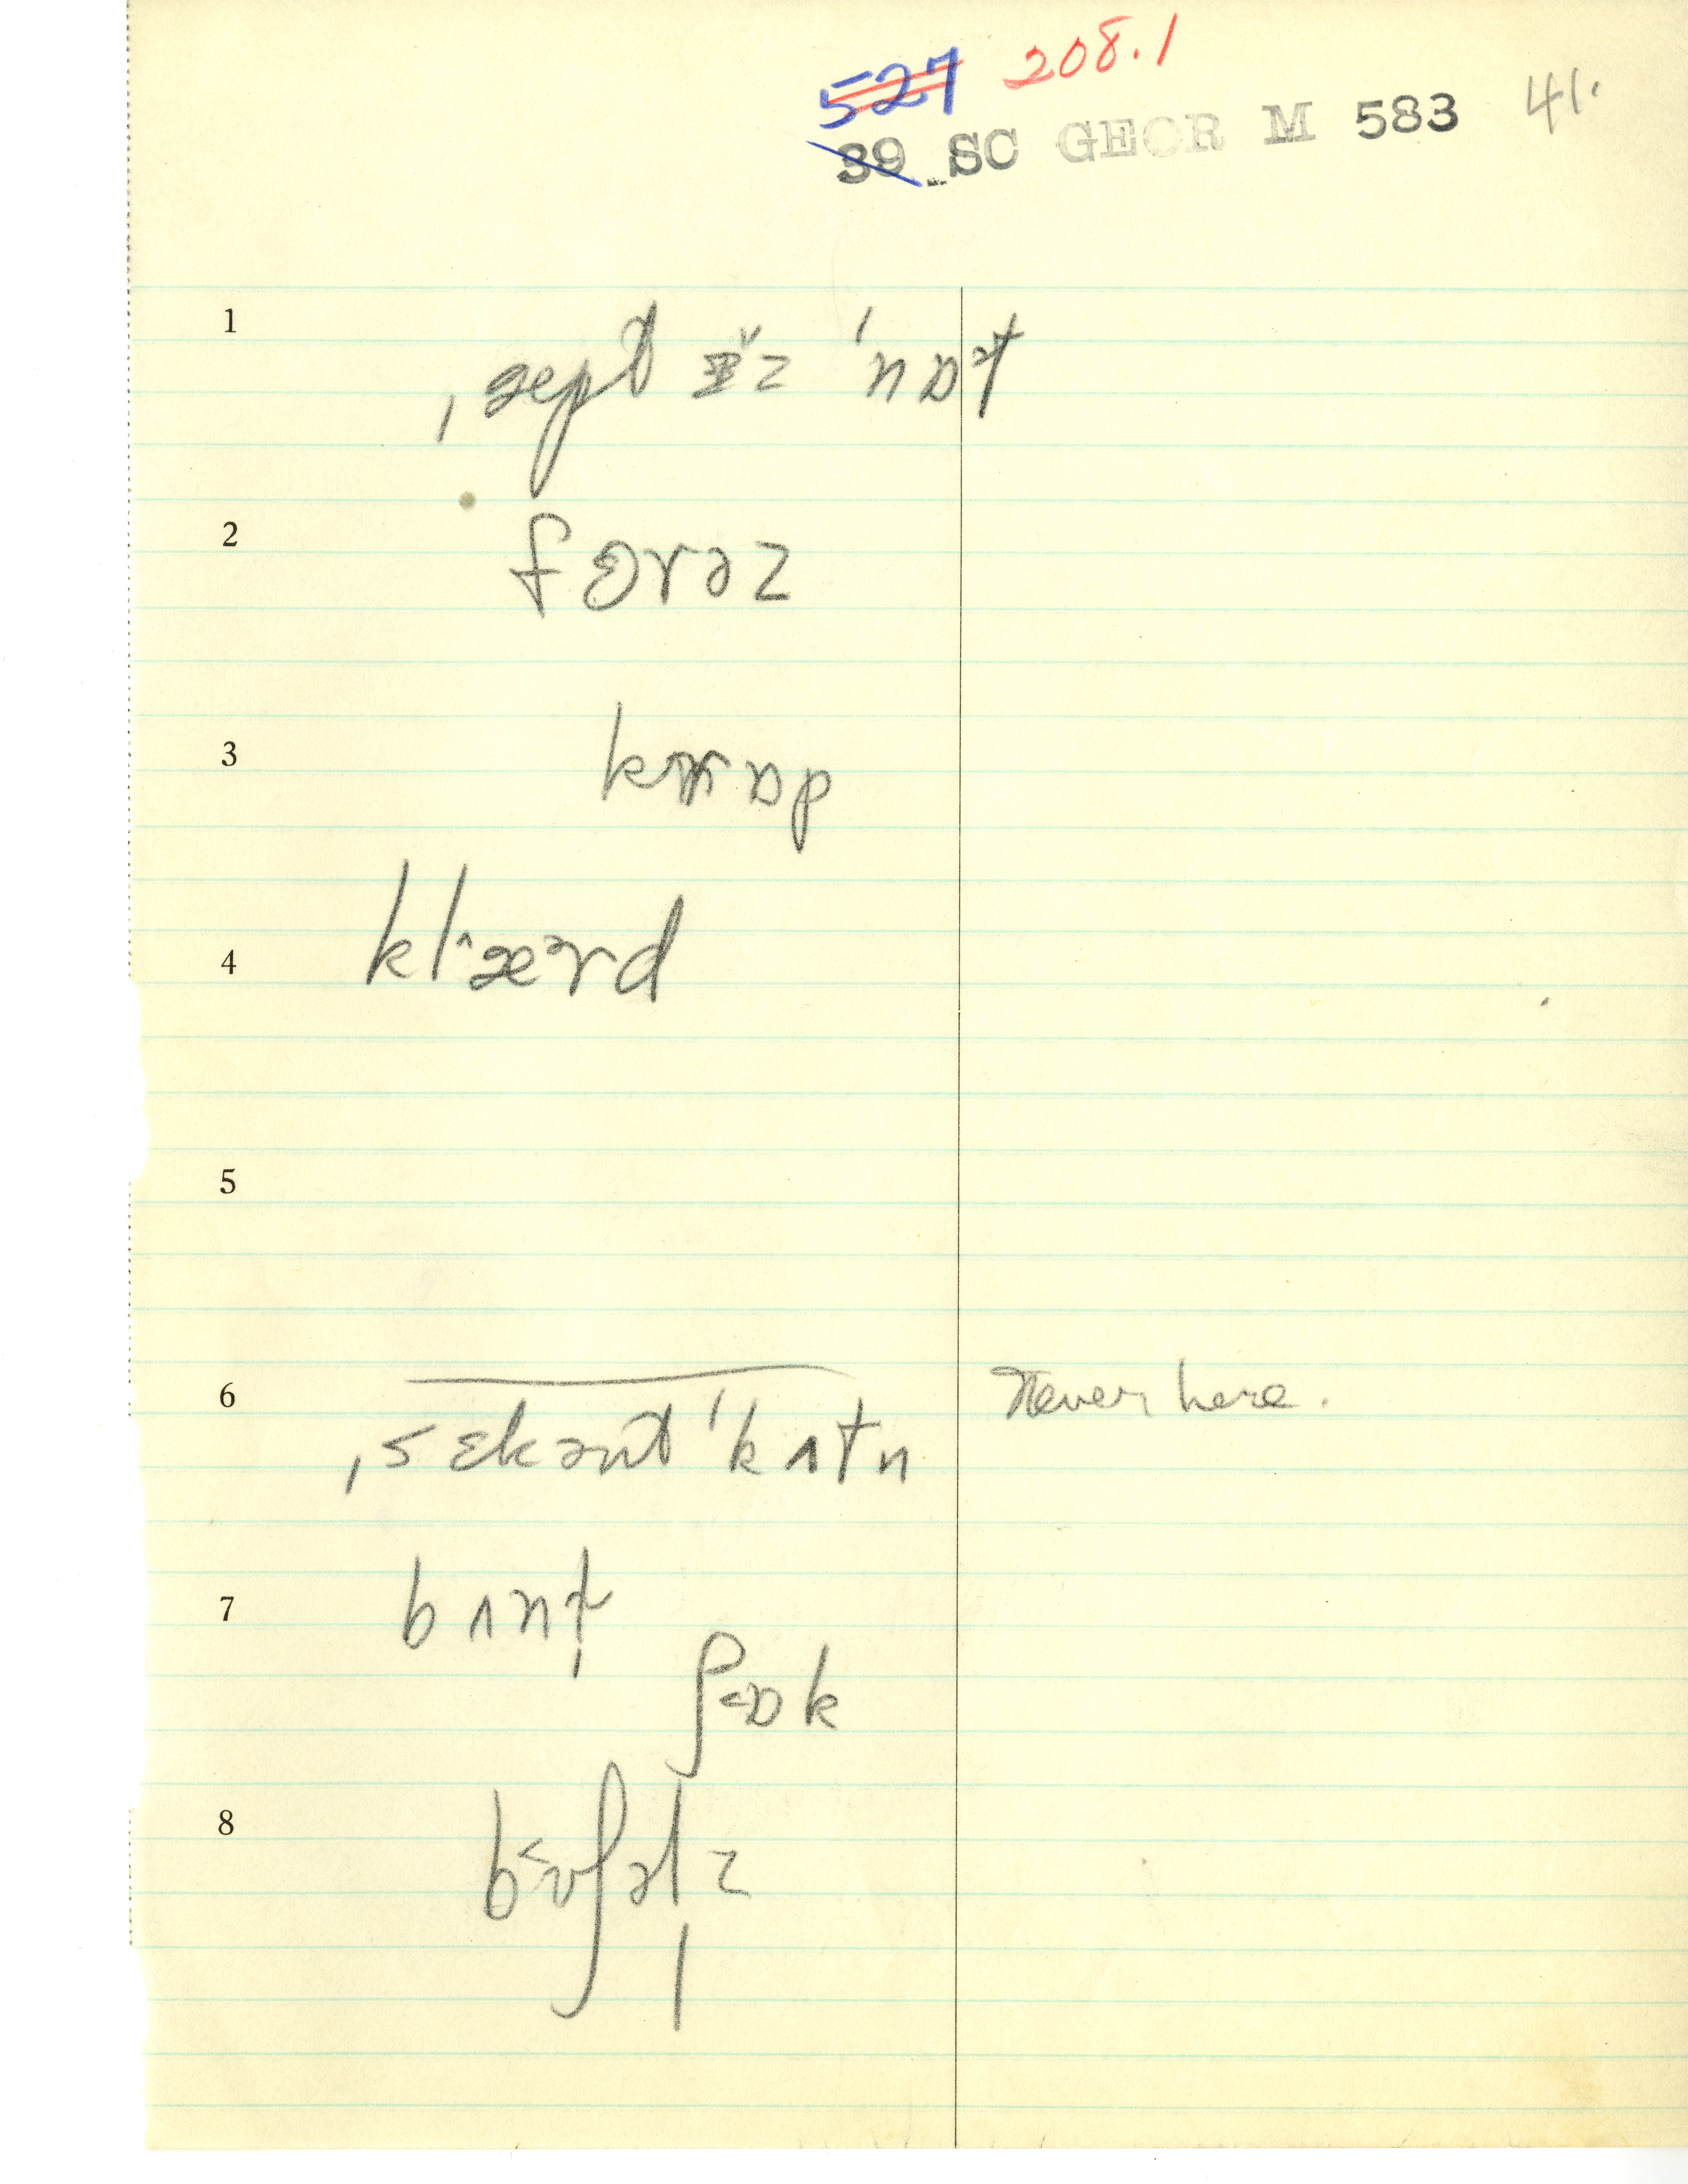 527 208.1
39 SC GEOR M 583 41.
1 ˌæpḷ ɪ̆z ˈnɒət
2 fɔrəz
3 krɒp
4 klˆæərd
5
6 ˌsɛkənt ˈkʌtn Never here.
7 bʌntʃ
ʃ˂ɒk
8 b˂ʊʃəlz